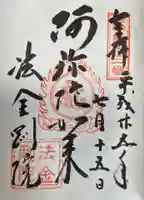 奉拝 平成廿五年
七月十五日
阿弥陀如来
法金剛院
法金